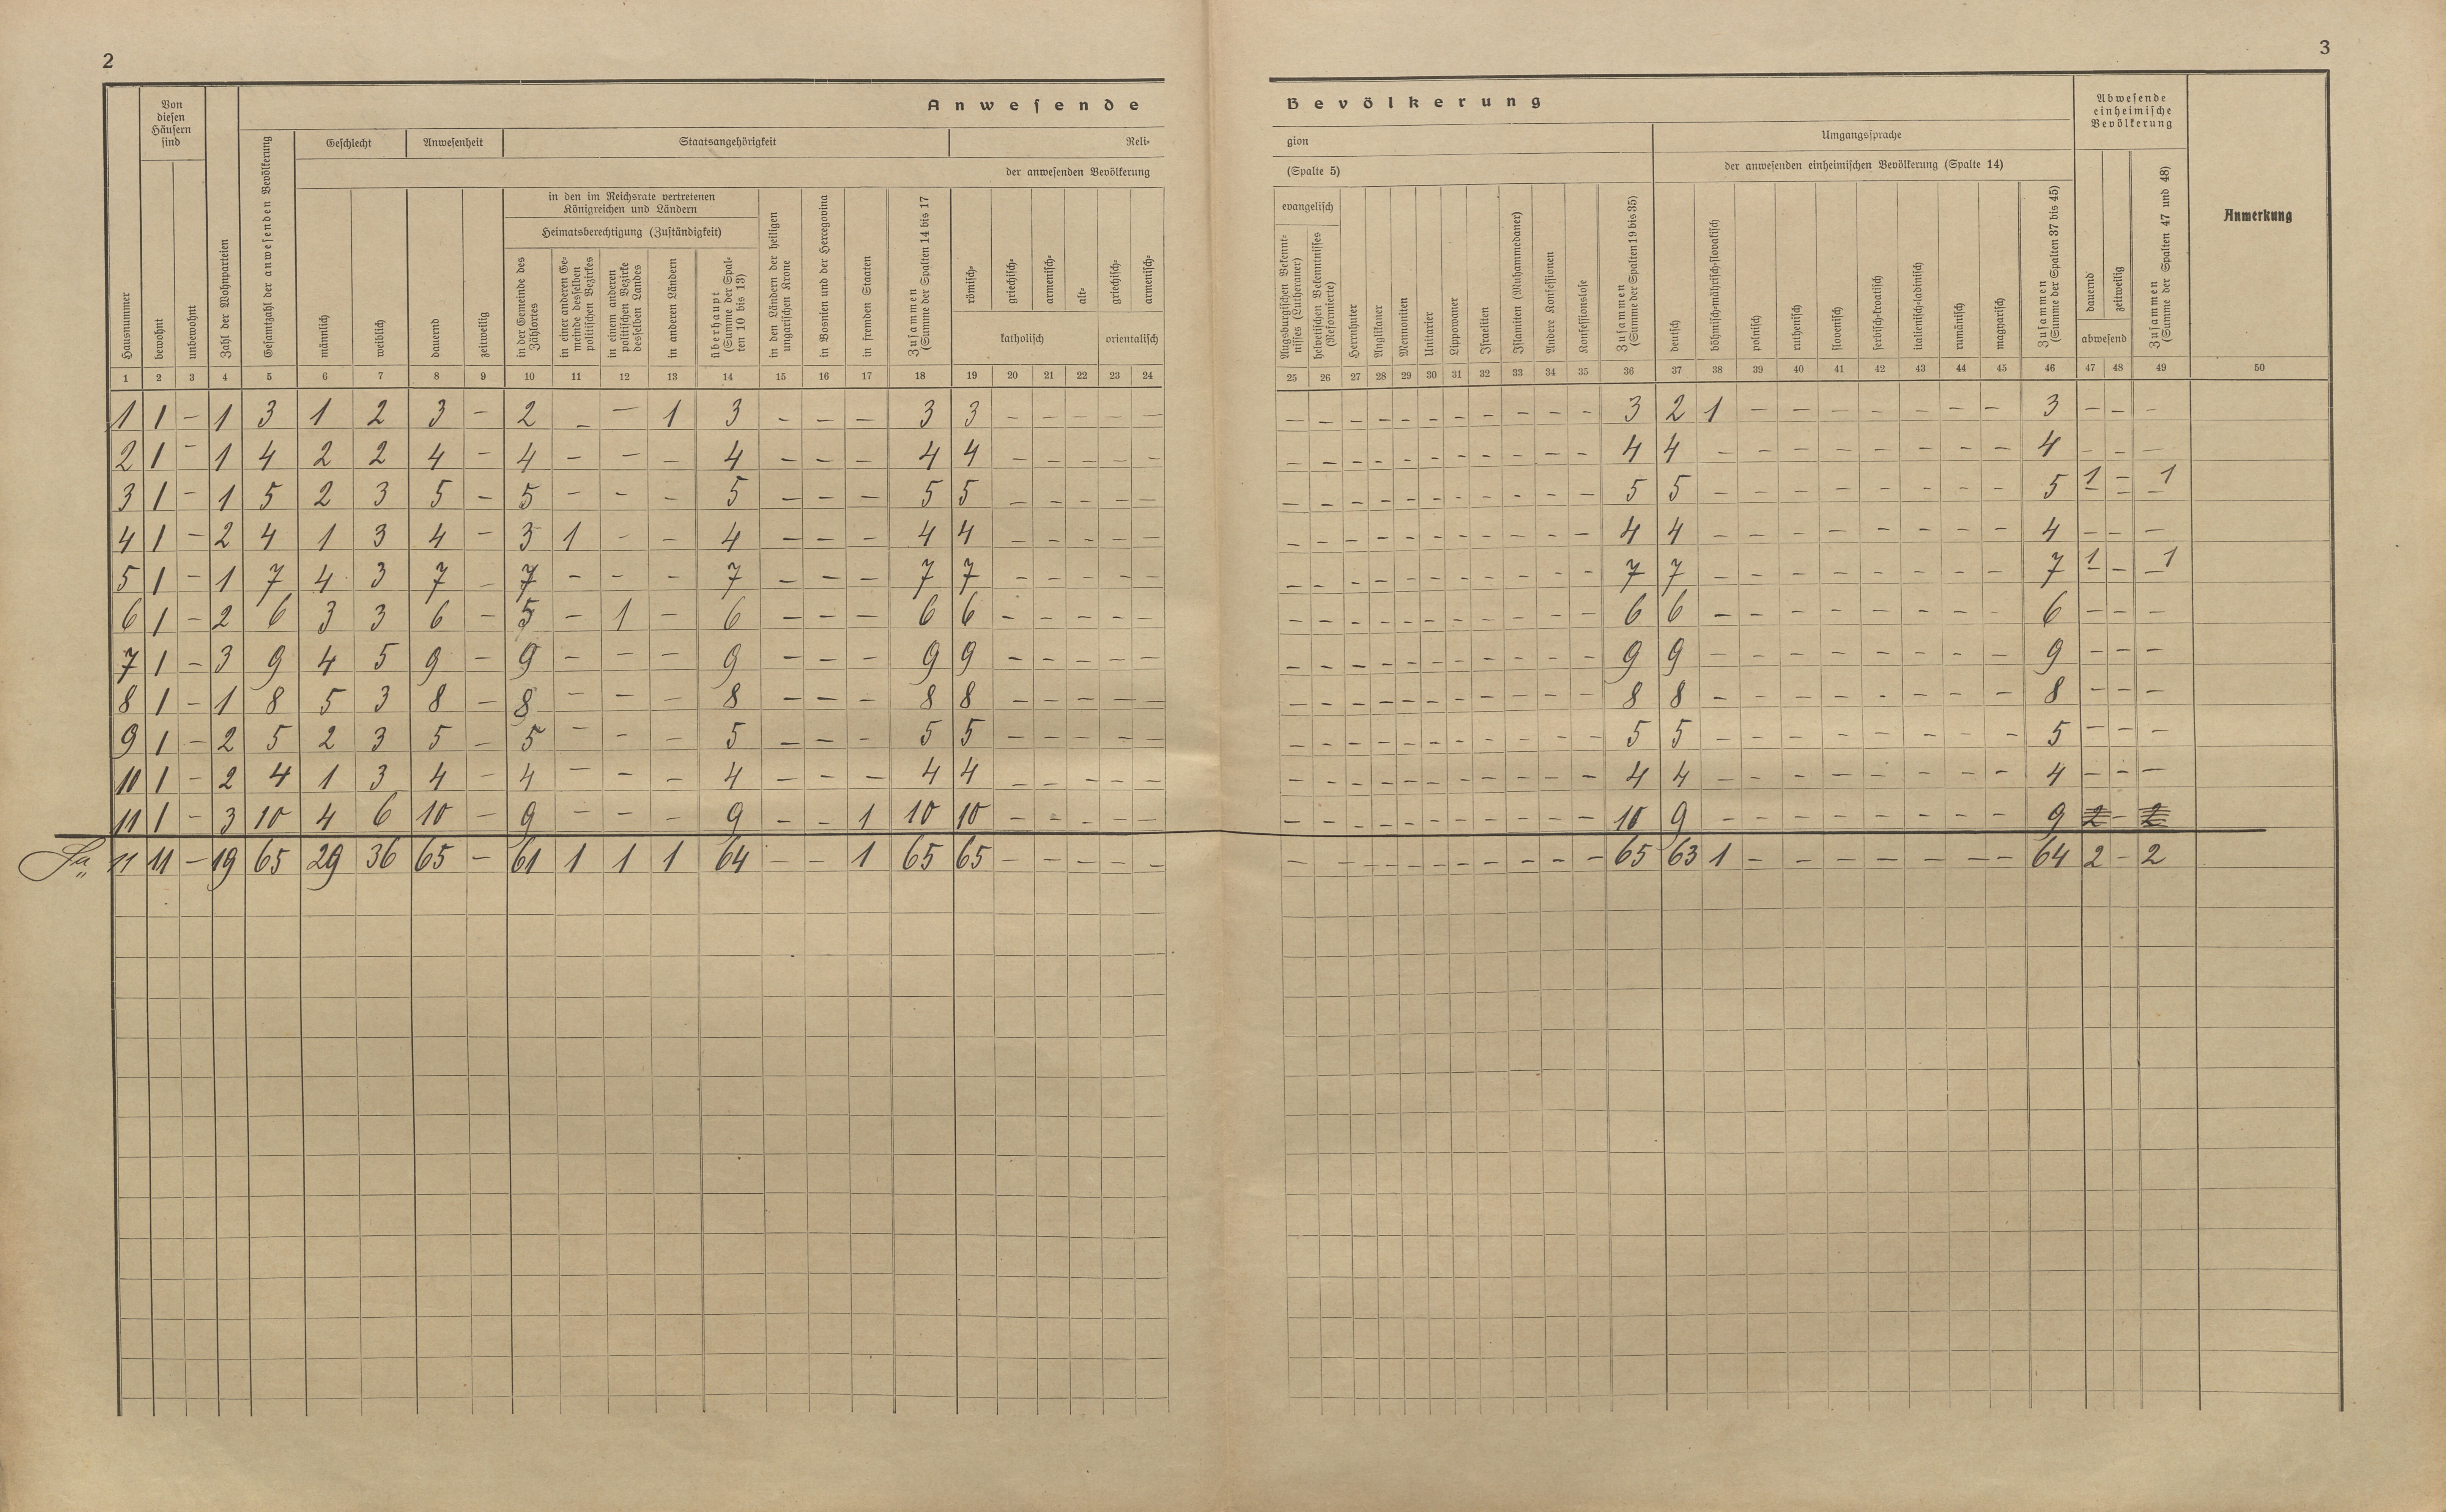 2
3
Anwesende Bevölkerung
Hausnummer
Von diesen Häusern sind
bewohnt
unbewohnt
Zahl der Wohnparteien
Gesamtzahl der anwesenden Bevölkerung
Geschlecht
männlich
weiblich
Anwesenheit
dauernd
zeitweilig
Staatsangehörigkeit
Reli-
gion
der anwesenden Bevölkerung
(Spalte 5)
in den im Reichsrate vertretenen
Königreichen und Ländern
Heimatsberechtigung (Zuständigkeit)
in der Gemeinde des
Zählortes
in einer anderen Ge-
meinde desselben
politischen Bezirkes
in einem anderen
politischen Bezirke
desselben Landes
in anderen Ländern
überhaupt
(Summe der Spal-
ten 10 bis 13)
in den Ländern der heiligen
ungarischen Krone
in Bosnien und der Hercegovina
in fremden Staaten
Zusammen
(Summe der Spalten 14 bis 17
römisch-
griechisch-
armenisch-
alt-
katholisch
griechisch-
armenisch-
orientalisch
evangelisch
Augsburgischen Bekennt-
nisses (Lutheraner)
helvetischen Bekenntnisses
(Reformierte)
Herrnhuter
Anglikaner
Mennoniten
Unitarier
Lippowaner
Israeliten
Islamiten (Muhammedaner)
Andere Konfessionen
Konfessionslose
Zusammen
(Summe der Spalten 19 bis 35)
Umgangssprache
der anwesenden einheimischen Bevölkerung (Spalte 14)
deutsch
böhmisch-mährisch-slovakisch
polnisch
ruthenisch
slovenisch
serbisch-kroatisch
italienisch-ladinisch
rumänisch
magyarisch
Zusammen
(Summe der Spalten 37 bis 45)
Abwesende
einheimische
Bevölkerung
dauernd
zeitweilig
abwesend
Zusammen
(Summe der Spalten 47 und 48)
Anmerkung
1 2 3 4 5 6 7 8 9 10 11 12 13 14 15 16 17 18 19 20 21 22 23 24 25 26 27 28 29 30 31 32 33 34 35 36 37 38 39 40 41 42 43 44 45 46 47 48 49 50
1 1 - 1 3 1 2 3 - 2 - - 1 3 - - - 3 3 - - - - - - - - - - - - - - - - 3 2 1 - - - - - - - 3 - - -
2 1 - 1 4 2 2 4 - 4 - - - 4 - - - 4 4 - - - - - - - - - - - - - - - - 4 4 - - - - - - - - 4 - - -
3 1 - 1 5 2 3 5 - 5 - - - 5 - - - 5 5 - - - - - - - - - - - - - - - - 5 5 - - - - - - - - 5 1 - 1
4 1 - 2 4 1 3 4 - 3 1 - - 4 - - - 4 4 - - - - - - - - - - - - - - - - 4 4 - - - - - - - - 4 - - -
5 1 - 1 7 4 3 7 - 7 - - - 7 - - - 7 7 - - - - - - - - - - - - - - - - 7 7 - - - - - - - - 7 1 - 1
6 1 - 2 6 3 3 6 - 5 - 1 - 6 - - - 6 6 - - - - - - - - - - - - - - - - 6 6 - - - - - - - - 6 - - -
7 1 - 3 9 4 5 9 - 9 - - - 9 - - - 9 9 - - - - - - - - - - - - - - - - 9 9 - - - - - - - - 9 - - -
8 1 - 1 8 5 3 8 - 8 - - - 8 - - - 8 8 - - - - - - - - - - - - - - - - 8 8 - - - - - - - - 8 - - -
9 1 - 2 5 2 3 5 - 5 - - - 5 - - - 5 5 - - - - - - - - - - - - - - - - 5 5 - - - - - - - - 5 - - -
10 1 - 2 4 1 3 4 - 4 - - - 4 - - - 4 4 - - - - - - - - - - - - - - - - 4 4 - - - - - - - - 4 - - -
11 1 - 3 10 4 6 10 - 9 - - - 9 - - 1 10 10 - - - - - - - - - - - - - - - - 10 9 - - - - - - - - 9 2 - 2
Sa 11 11 - 19 65 29 36 65 - 61 1 1 1 64 - - 1 65 65 - - - - - - - - - - - - - - - - 65 63 1 - - - - - - - 64 2 - 2